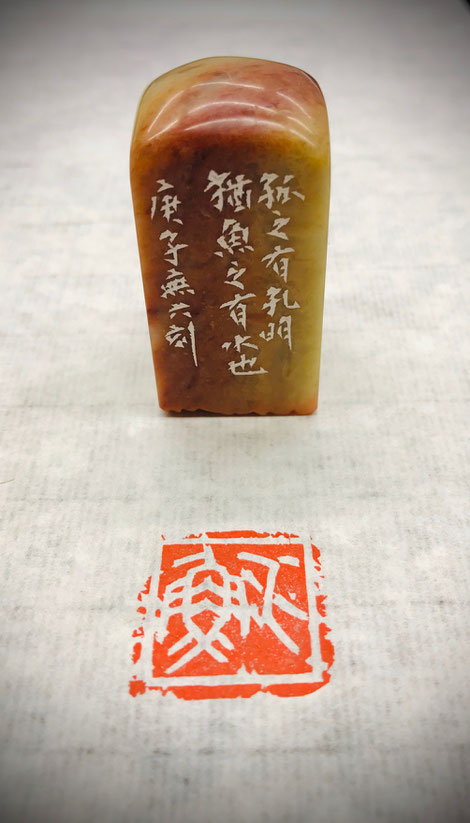 孤之有孔明
猶魚之有水也
庚子無六刻